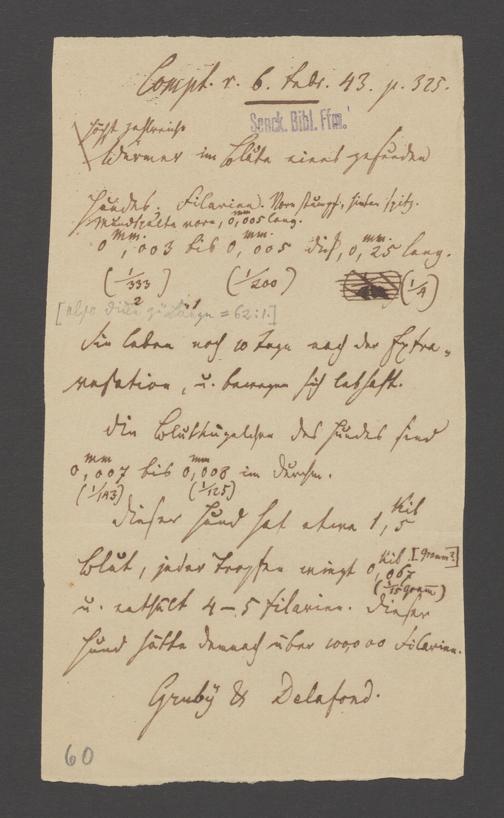 Compt. r. 6. Febr. 43. p. 325.
Senck. Bibl. Ffm.
höchst zahlreiche
Würmer im Blute eines gesunden
Hundes. Filarien. Vorn stumpf, hinten spitz.
Mundspalte vorn, 0,005 mm. lang.
0 mm.,003 bis 0 mm.,005 dick, 0 mm.,25 lang.
(1/333) (1/200) (1/4)
[also Dicke zu Länge = 62:1.]
2 1
Sie leben noch 10 Tage nach der Extra-
vasation, u. bewegen sich lebhaft.
Die Blutkügelchen des Hundes sind
0 mm,007 bis 0 mm,008 im Durchm.
(1/143) (1/125)
Dieser Hund hat etwa 1 Kil,5
Blut, jeder Tropfen wiegt 0 Kil,067 [Gramm?]
(1/15 gram)
u. enthält 4–5 Filarien. Dieser
Hund hätte demnach über 100000 Filarien.
Gruby & Delafond.
60